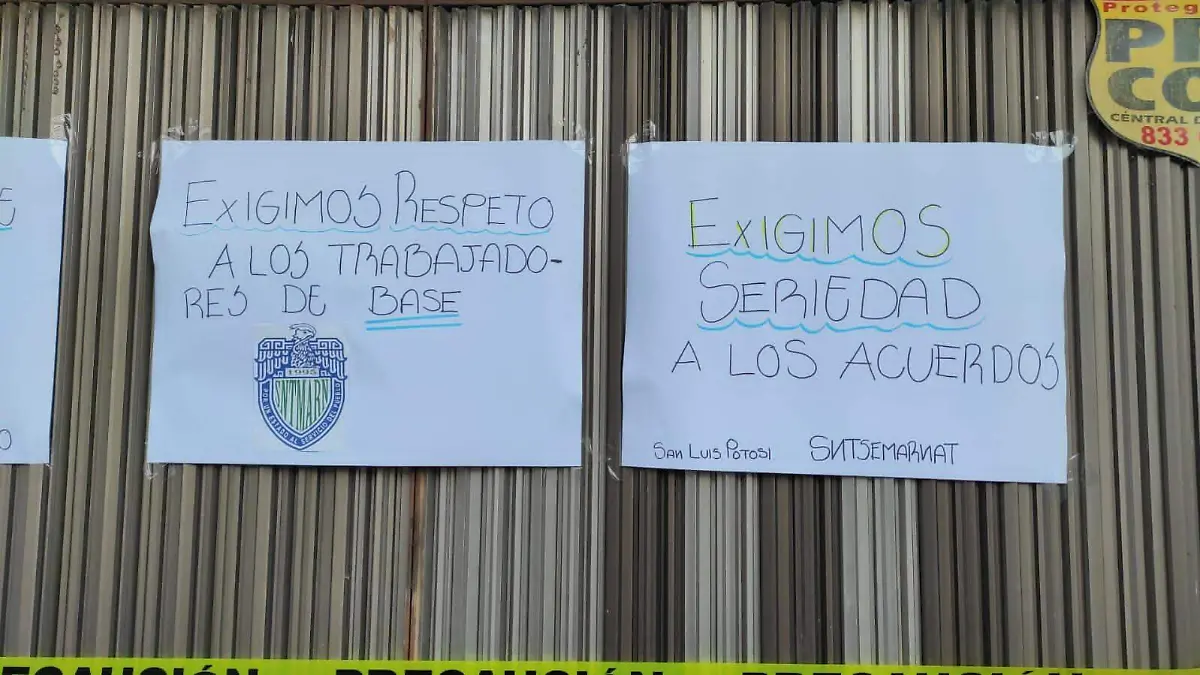 EXIGIMOS RESPETO
A LOS TRABAJADO-
RES DE BASE
1995
SNTMARN
POR UN ESTADO AL SERVICIO DEL PUEBLO
EXIGIMOS
SERIEDAD
A LOS ACUERDOS
SAN LUIS POTOSI SNTSEMARNAT
Proteg
CO
CENTRAL D
833
PRECAUCIÓN PRECAUCIÓN